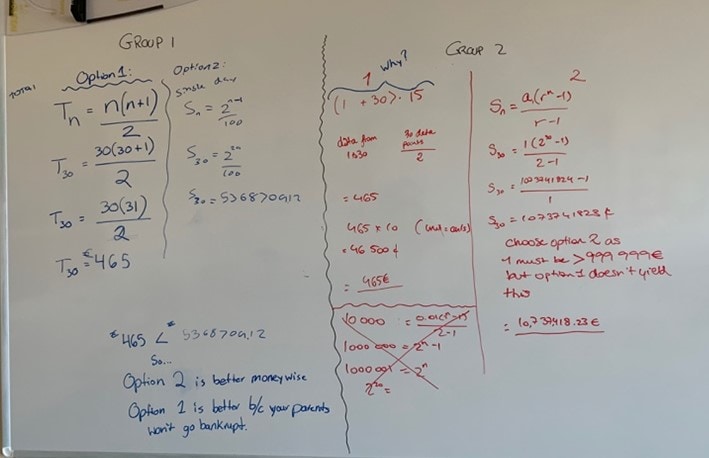 GROUP 1
Option 1:
Tn = n(n+1)
2
T30 = 30(30+1)
2
T30 = 30(31)
2
T30 = €465
Option 2:
single day
Sn = 2^n-1
100
S30 = 2^29
100
S30 = 5368709,12
€465 < € 5368709,12
So...
Option 2 is better moneywise
Option 1 is better b/c your parents
won't go bankrupt.
GROUP 2
1 why?
(1 + 30) · 15
data from
1 to 30
30 data
points
2
= 465
465 × 10
= 46 500 ¢
= 465€
10 000 = 0.01(r^n-1)
2-1
1000 000 = 2^n - 1
1000 001 = 2^n
2^20 =
2
Sn = a1(r^n - 1)
r-1
S30 = 1(2^30 - 1)
2-1
S30 = 1073741824 - 1
1
S30 = 1073741823 ¢
choose option 2 as
must be > 999 999€
but option 1 doesn't yield
this
= 10,737418.23 €